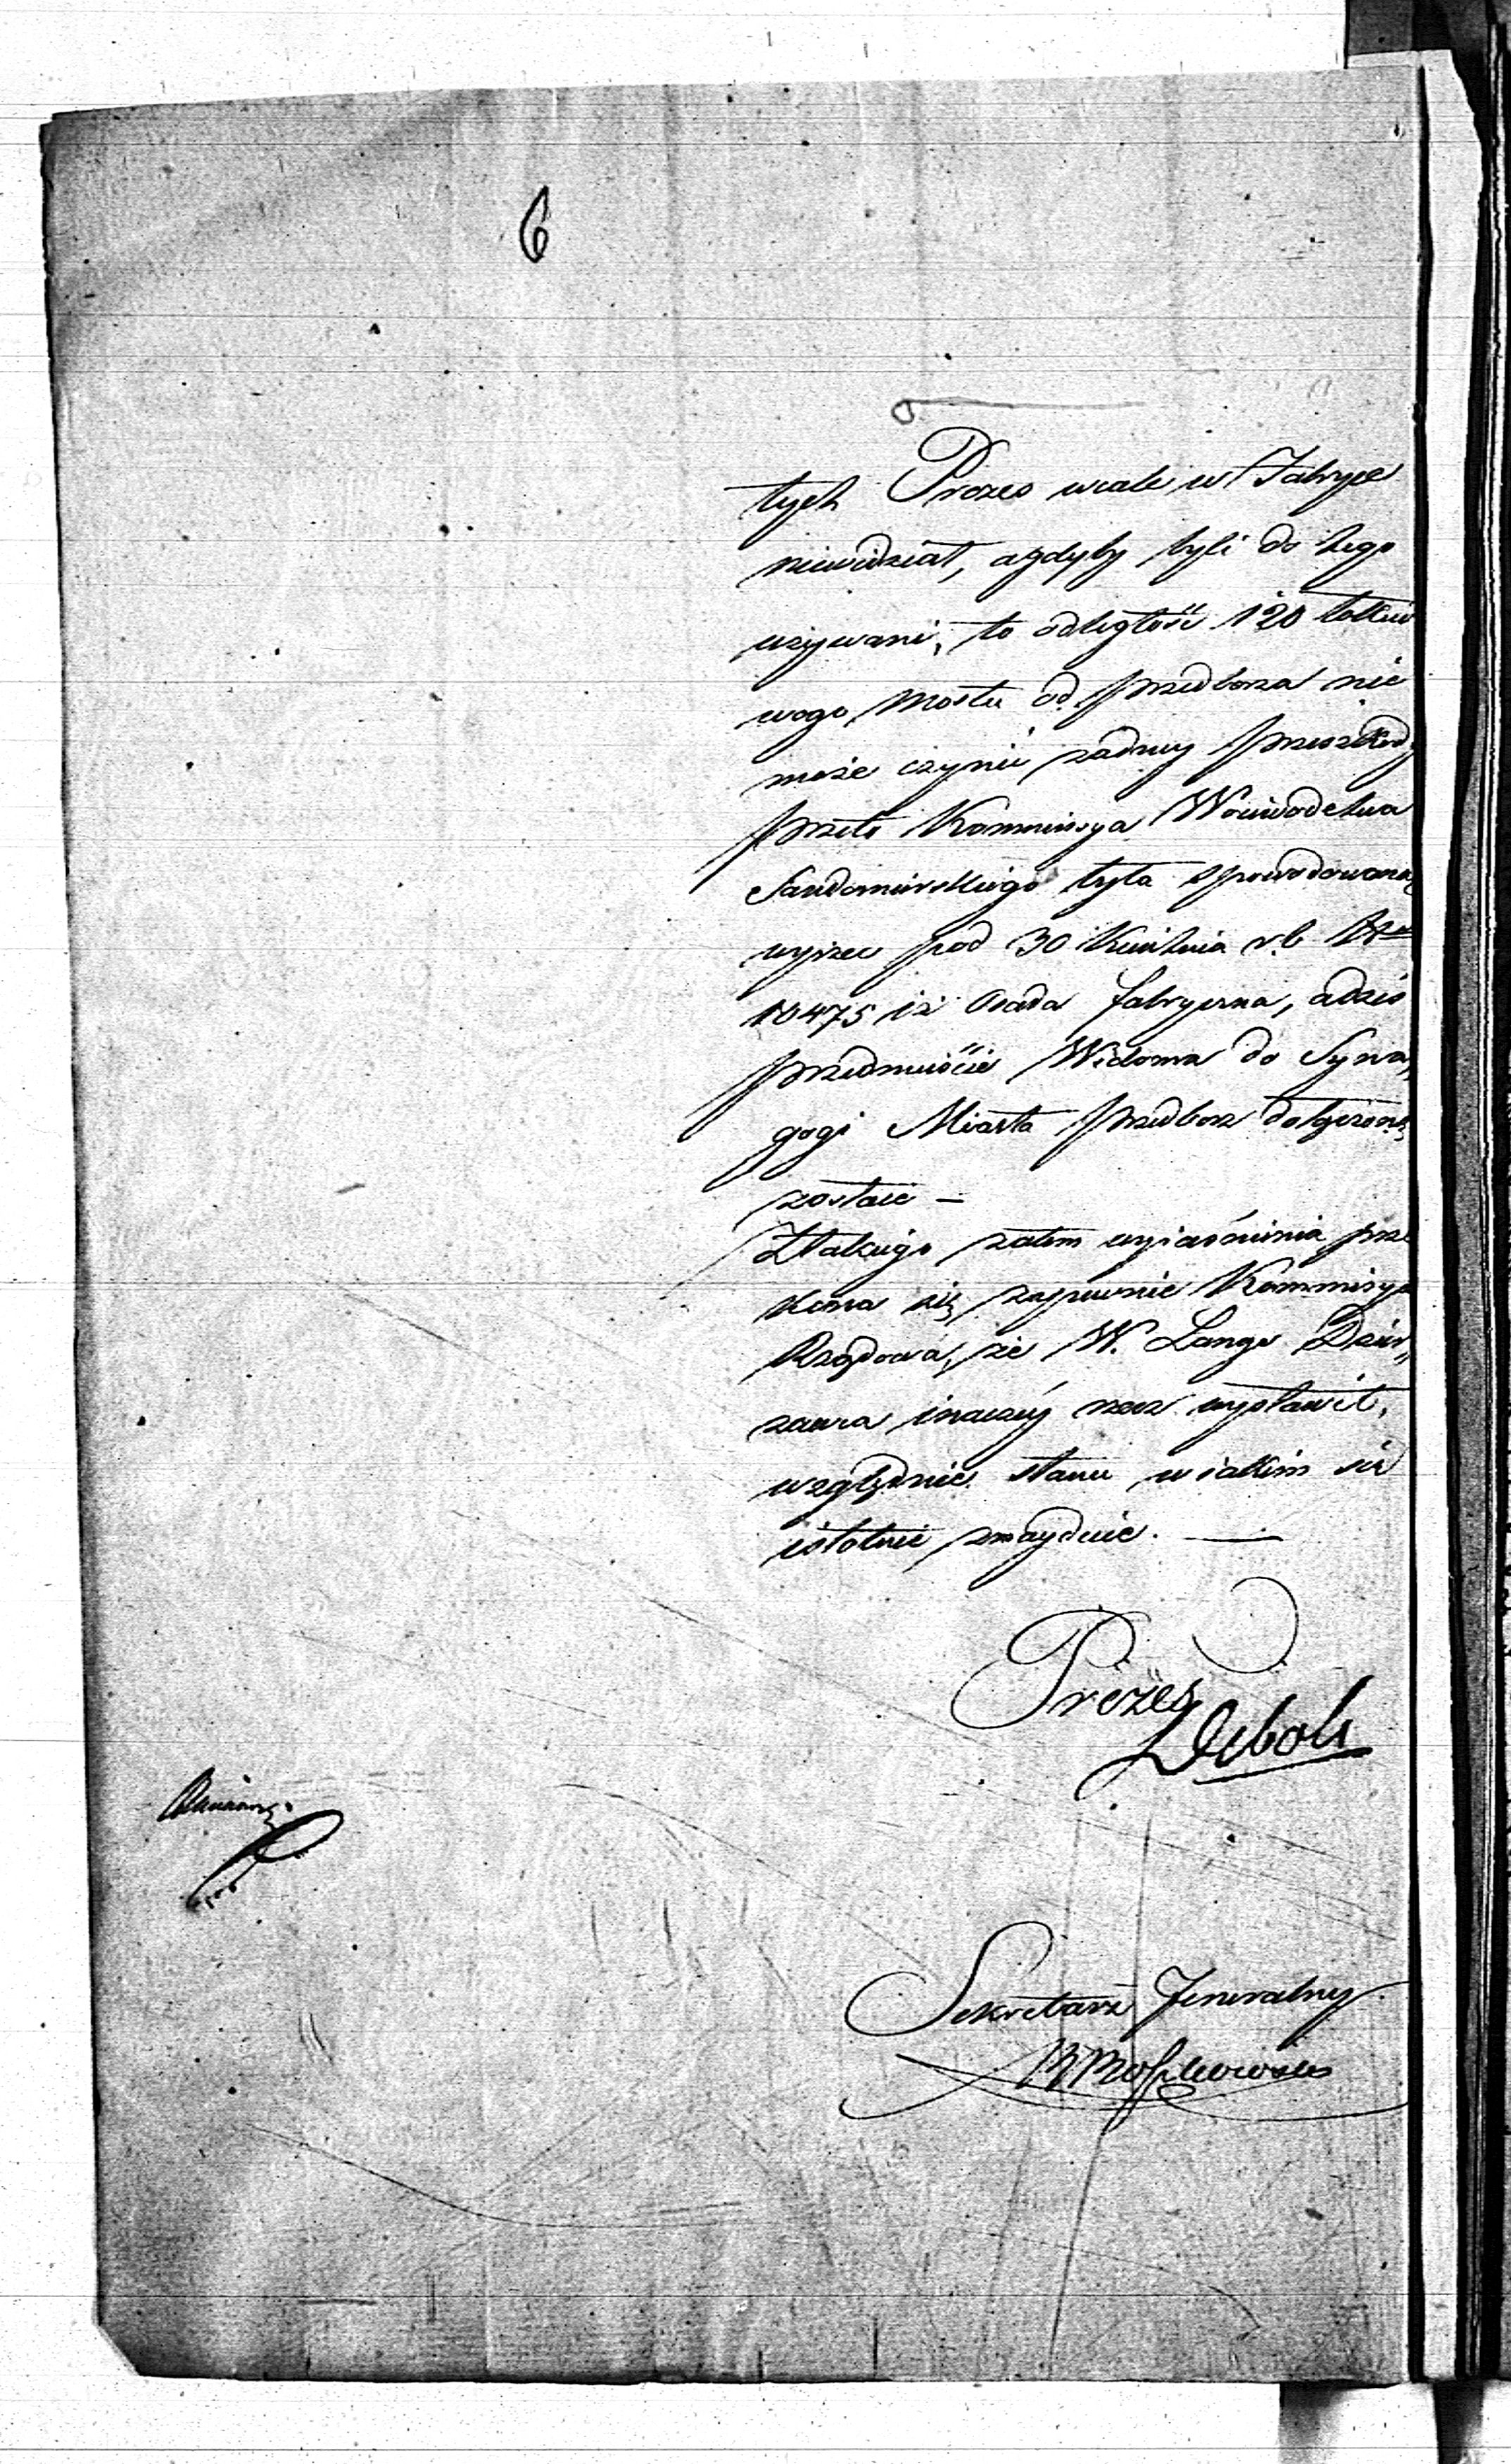 6
tych Prezes wcale w Fabryce
niewidział, agdyby byli do tego
używani, to odległość 120 łokcio
wego mostu od Przedborza nie
może czynić żadney przeszkody
przeto Kommissya Woiewodztwa
Sandomirskiego była spowodowaną
wyrzec pod 30 Kwietnia r.b. Nr
10475 iż Osada fabryczna, adziś
przedmieście Widoma do Syna„
gogi Miasta Przedborz dołączoną
zostaie —
Ztakiego zatem wyiaśnienia prze
kona się zapewnie Kommissya
Rządowa, że W. Lange Dzier„
zawca inaczéy rzecz wystawił,
względnie stanu wiakim się
istotnie znayduie. —
Prezes
Deboli
Sekretarz Jeneralny